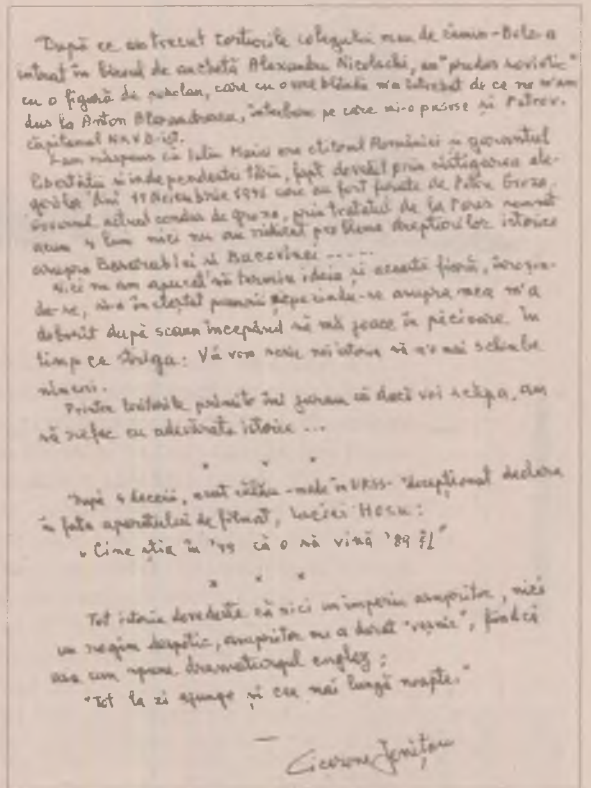 "După ce am trecut torturile colegului meu de cămin-Bele-a
intrat în biroul de anchetă Alexandru Nicolschi, un "produs sovietic"
cu o figură de, care cu o voce blândă m-a întrebat de ce nu m-am
dus la Anton Alexandrescu, întrebare pe care mi-o pusese și Petrov.
Căpitanul NKVD-ist.
I-am răspuns că Iuliu Maniu era ctitorul României și garantul
libertății și independenței țării, fapt dovedit prin câștigarea ale-
gerilor din 19 Noiembrie 1946 care au fost furate de Petru Groza,
Guvernul actual condus de groza, prin tratatul de la Paris semnat
acum 4 luni nici nu au ridicat problema drepturilor istorice
asupra Basarabiei și Bucovinei.....
Nici nu am apucat să termin ideia și această fiară, înroșin-
du-se, și-a încleștat pumnii repezindu-se asupra mea m'a
doborît după scaun începând să mă joace în picioare. În
timp ce striga: Vă vom scrie noi istoria să n'o mai schimbe
nimeni.
Printre loviturile primite îmi juram că dacă voi scăpa, am
să refac cu adevărat istoria...
* * *
După 4 decenii, acest călău-made in URSS- decepționat declara
în fața aparatului de filmat, Luciei Hossu:
"Cine știa în '49 că o să vină '89 ?!"
* * *
Tot istoria dovedește că nici un imperiu asupritor, nici
un regim despotic, asupritor nu a durat "veșnic", fiindcă
așa cum spune dramaturgul englez;
"Tot la zi ajunge și cea mai lungă noapte."
Cicerone Ionițoiu